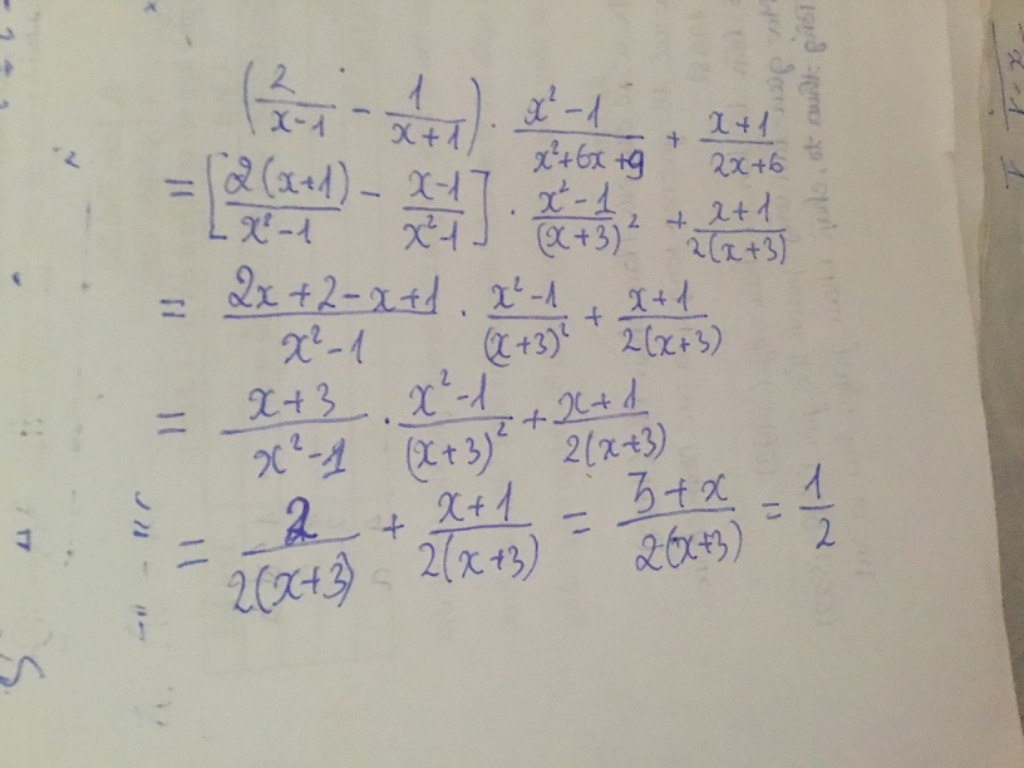 (2/(x-1) - 1/(x+1)) . (x²-1)/(x²+6x+9) + (x+1)/(2x+6)
= [2(x+1)/(x²-1) - (x-1)/(x²-1)] . (x²-1)/(x+3)² + (x+1)/2(x+3)
= (2x+2-x+1)/(x²-1) . (x²-1)/(x+3)² + (x+1)/2(x+3)
= (x+3)/(x²-1) . (x²-1)/(x+3)² + (x+1)/2(x+3)
= 2/2(x+3) + (x+1)/2(x+3) = (3+x)/2(x+3) = 1/2